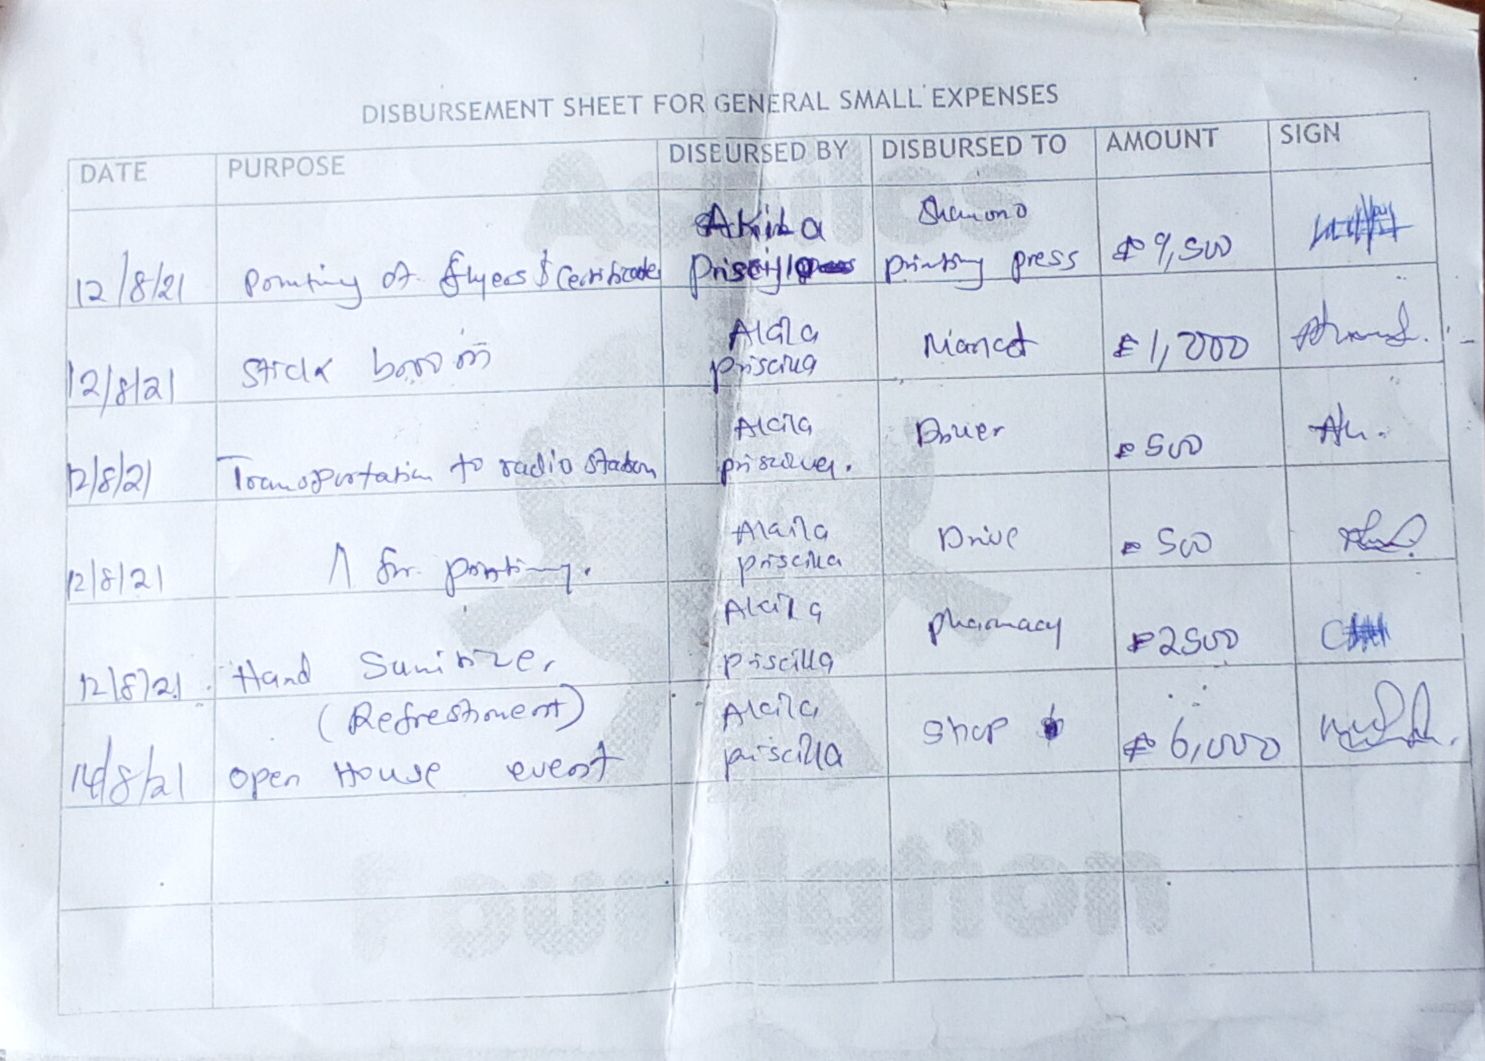 DISBURSEMENT SHEET FOR GENERAL SMALL EXPENSES
DATE PURPOSE DISBURSED BY DISBURSED TO AMOUNT SIGN
12/8/21 Printing of flyers & Certificates Akila Priscilla Shamono printing press ₦ 9,500
12/8/21 Stick broom Akila priscilla Market ₦ 1,000
12/8/21 Transportation to radio station Akila priscilla. Driver ₦ 500
12/8/21 for printing. Akila priscilla Drive ₦ 500
12/8/21 Hand Sanitizer Akila priscilla pharmacy ₦ 2500
14/8/21 (Refreshment) open House event Akila priscilla Shop ₦ 6,000
Foundation